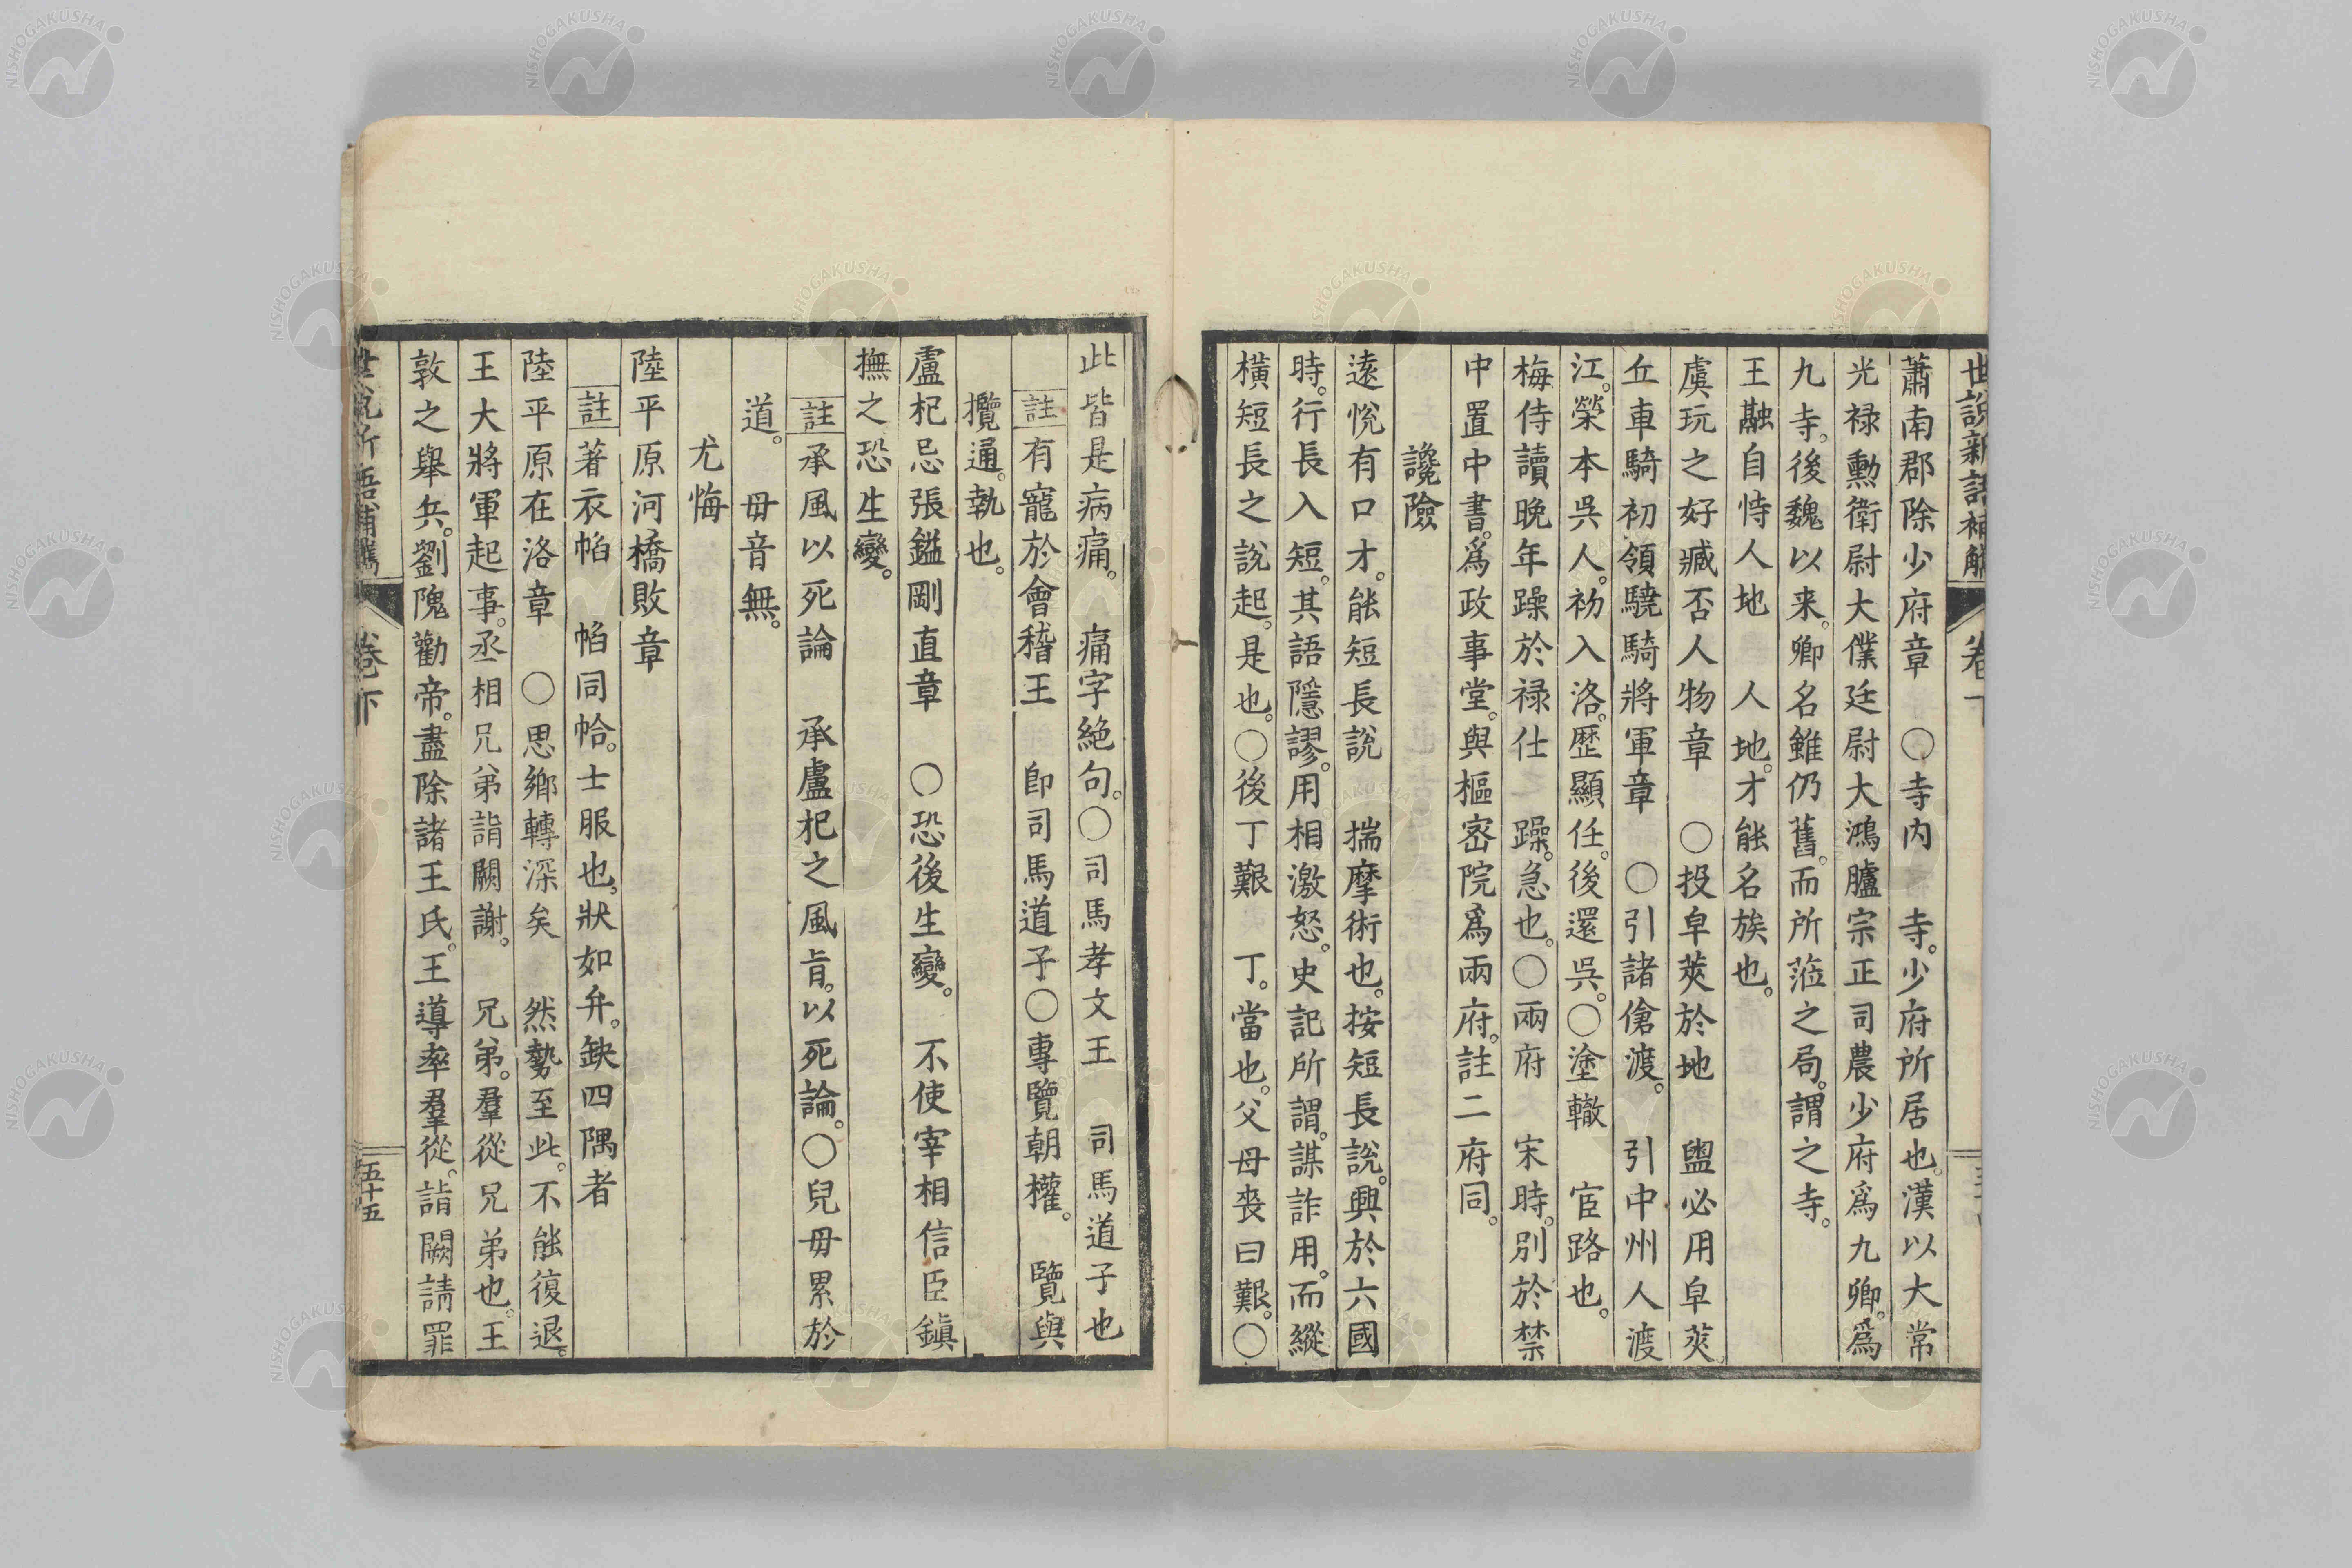 世說新語補觿 卷下
蕭南郡除少府章　○寺内　寺。少府所居也。漢以大常
光禄勳衛尉大僕廷尉大鴻臚宗正司農少府爲九卿。爲
九寺。後魏以来。卿名雖仍舊。而所蒞之局。謂之寺。
王融自恃人地　人地。才能名族也。
虞玩之好臧否人物章　○投皁莢於地　盥必用皁莢。
丘車騎初領驍騎將軍章　○引諸傖渡。　引中州人渡
江。榮本呉人。初入洛。歴顯任。後還呉。○塗轍　宦路也。
梅侍讀晚年躁於禄仕　躁。急也。○兩府　宋時。別於禁
中置中書。爲政事堂。與樞密院爲兩府。註二府同。
讒險
遠悅有口才。能短長說　揣摩術也。按短長說。興於六國
時。行長入短。其語隱謬。用相激怒。史記所謂。謀詐用。而縱
橫短長之說起。是也。○後丁艱　丁。當也。父母喪曰艱。○
此皆是病痛。　痛字絶句。○司馬孝文王　司馬道子也
註有寵於會稽王　卽司馬道子○專覽朝權。　覽與
攬通。執也。
盧杞忌張鎰剛直章　○恐後生變。　不使宰相信臣鎭
撫之恐生變。
註承風以死論　承盧杞之風旨。以死論。○兒毋累於
道。　毋音無。
尤悔
陸平原河橋敗章
註著衣帢　帢同帢。士服也。狀如弁。缺四隅者
陸平原在洛章　○思鄉轉深矣　然勢至此。不能復退。
王大將軍起事。丞相兄弟詣闕謝。　兄弟。羣從兄弟也。王
敦之舉兵。劉隗勸帝。盡除諸王氏。王導率羣從。詣闕請罪
世說新語補觿 卷下 五十五